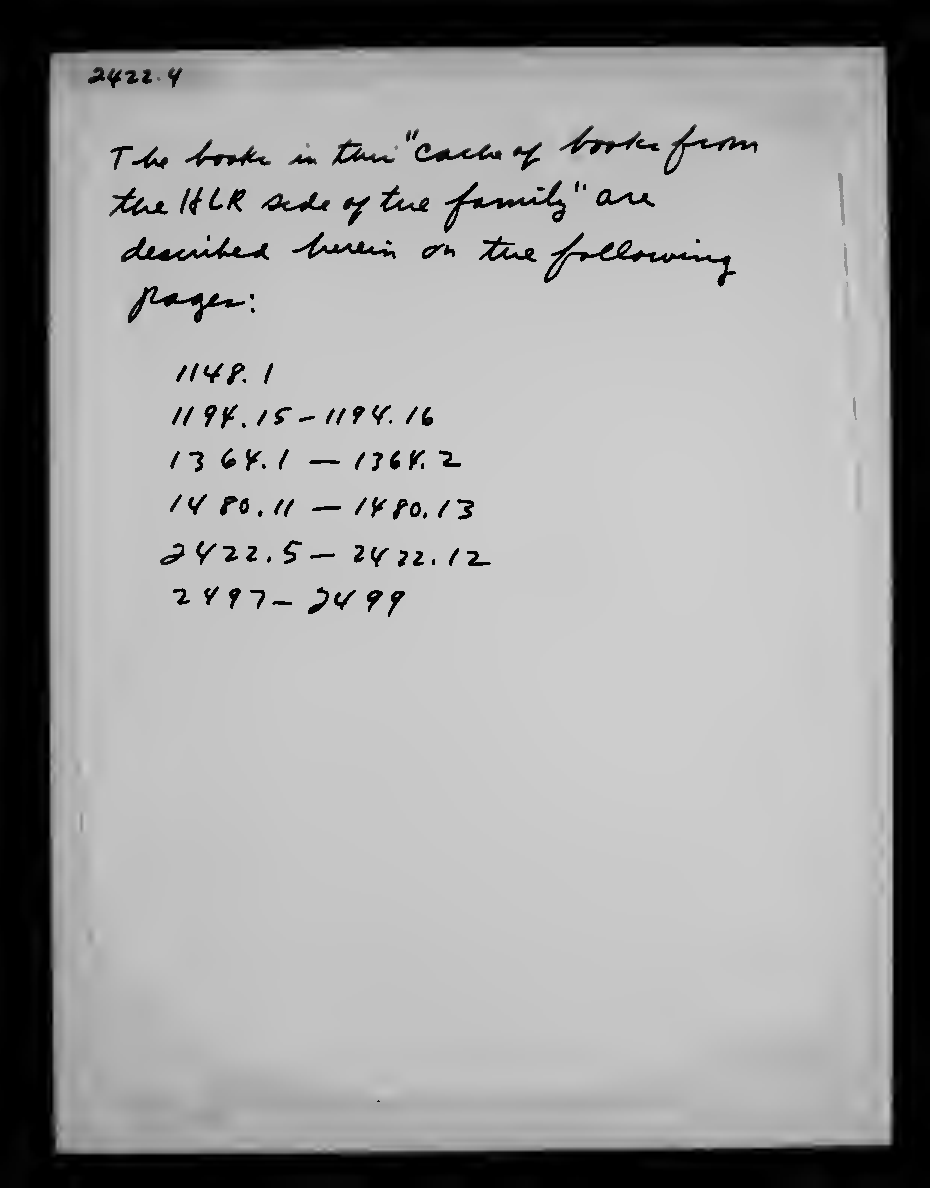 2422.4
The books in this "cache of books from
the HLR side of the family" are
described herein on the following
pages:
1148.1
1194.15-1194.16
1364.1 — 1364.2
1480.11 — 1480.13
2422.5 — 2422.12
2497 — 2499